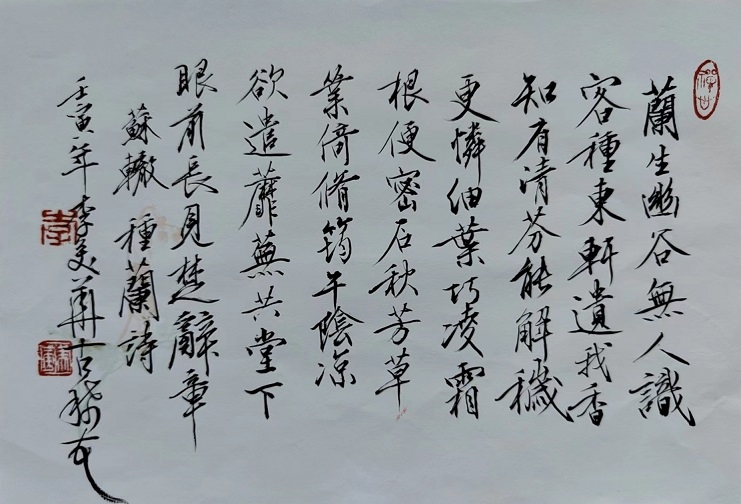 蘭生幽谷無人識
客種東軒遺我香
知有清芬能解穢
更憐細葉巧凌霜
根便密石秋芳草
倚脩筠午陰凉
欲遣蘼蕪共堂下
眼前長見楚辭章
蘇轍種蘭詩
壬寅年李美華古稀
李